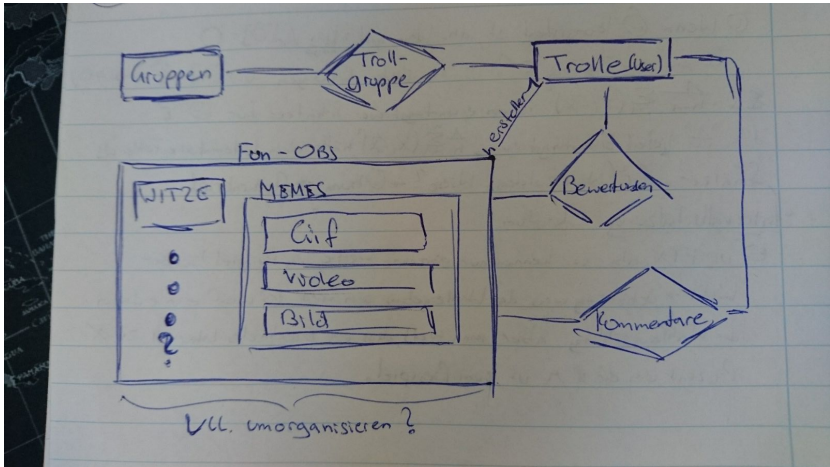 Gruppen
Troll-
gruppe
Trolle (User)
herstellen
Fun-OBS
WITZE
MEMES
Gif
Video
Bild
?
Bewertungen
Kommentare
Vll. umorganisieren?